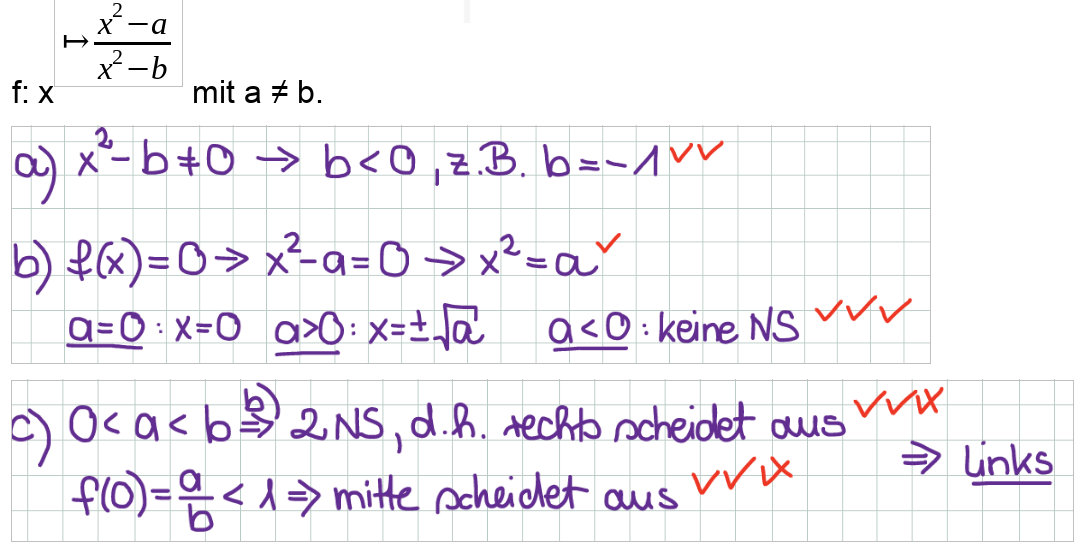 f: x ↦ (x² − a)/(x² − b) mit a ≠ b.
a) x² - b ≠ 0 → b < 0, z.B. b = -1 ✓✓
b) f(x) = 0 → x² - a = 0 → x² = a ✓
a = 0 : x = 0 a > 0 : x = ±√a a < 0 : keine NS ✓✓✓
c) 0 < a < b ⇒ b) 2 NS, d.h. rechts scheidet aus ✓✓ix
f(0) = a/b < 1 ⇒ mitte scheidet aus ✓✓ix
⇒ Links